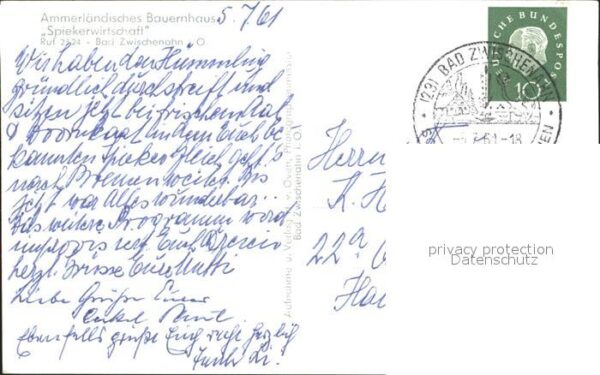 Ammerländisches Bauernhaus
5.7.61
„Spiekerwirtschaft"
Ruf 2824 - Bad Zwischenahn i. O.
Wir haben den Hümmling
gründlich durchstreift und
sitzen jetzt bei frischem Aal
& Doornkaat in dem be
kannten Spieker. Gleich geht's
nach Bremen weiter. Bis
jetzt war Alles wunderbar..
Das weitere Programm wird
improvisiert. Euch Dreien
herzl. Grüsse Eure Mutti
Liebe Grüße Euer
Onkel
Ebenfalls grüße Euch recht herzlich
Tante
Aufnahme u. Verlag: v. Oven, Photo
Bad Zwischenahn i. O.
DEUTSCHE BUNDESPOST
10
(23) BAD ZWISCHENAHN
.7.61-18
Herrn
K. H
22a
Ha
privacy protection
Datenschutz